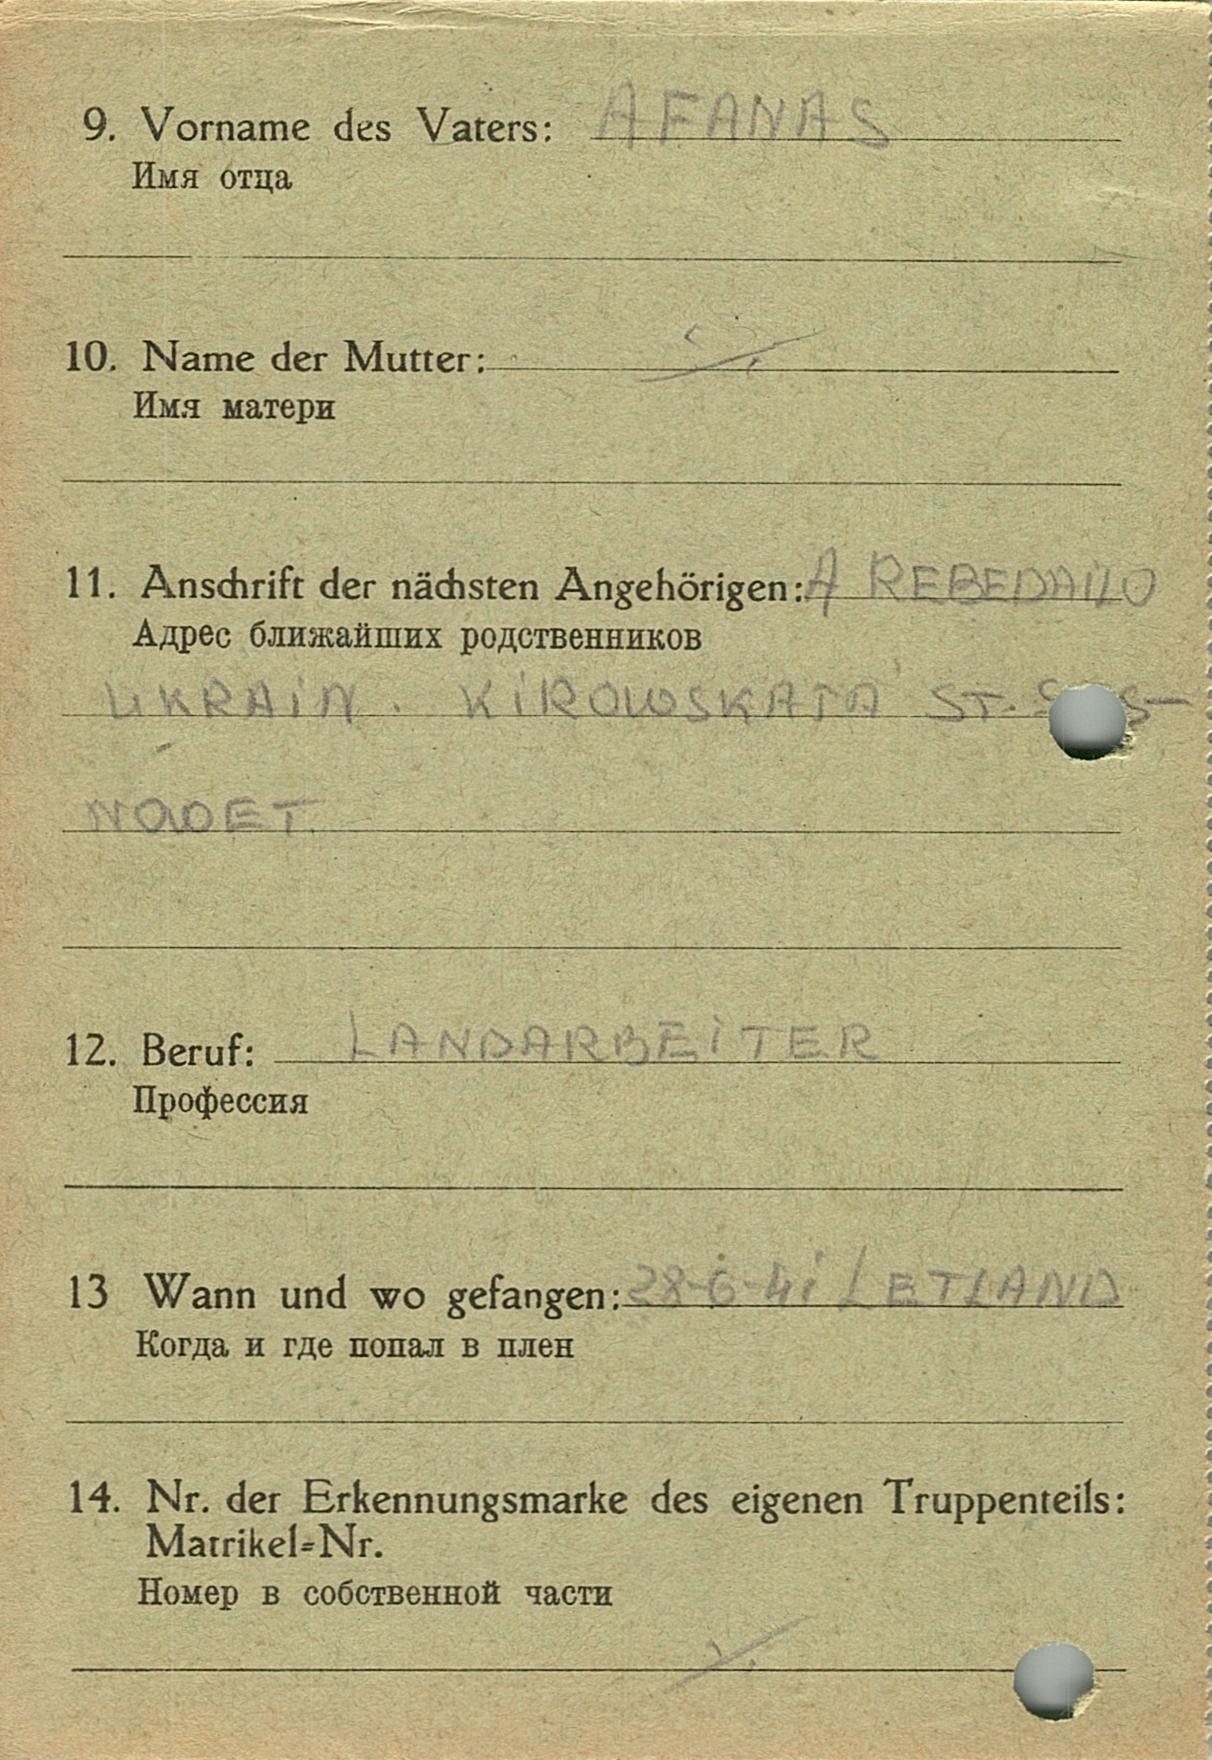 9. Vorname des Vaters: AFANAS
Имя отца
10. Name der Mutter: ·/.
Имя матери
11. Anschrift der nächsten Angehörigen: A REBEDAILO
Адрес ближайших родственников
UKRAIN. KIROWSKATA ST.
NODET
12. Beruf: LANDARBEITER
Профессия
13 Wann und wo gefangen: 28-6-41 LETLAND
Когда и где попал в плен
14. Nr. der Erkennungsmarke des eigenen Truppenteils:
Matrikel=Nr.
Номер в собственной части
·/.